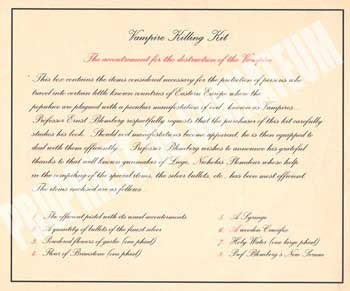 Vampire Killing Kit
The accoutrement for the destruction of the Vampire
This box contains the items considered necessary for the protection of persons who
travel into certain little known countries of Eastern Europe where the
populace are plagued with a peculiar manifestation of evil, known as Vampires.
Professor Ernst Blomberg respectfully requests that the purchaser of this kit carefully
studies his book. Should evil manifestations become apparent, he is then equipped to
deal with them efficiently. Professor Blomberg wishes to announce his grateful
thanks to that well known gunmaker of Liege, Nicholas Plomdeur whose help
in the compiling of the special items, the silver bullets, etc., has been most efficient.
The items enclosed are as follows...
1. The efficient pistol with its usual accoutrements
2. A quantity of bullets of the finest silver
3. Powdered flowers of garlic (one phial)
4. Flour of Brimstone (one phial)
5. A Syringe
6. A wooden Crucifix
7. Holy Water (one large phial)
8. Prof Blomberg's New Serum
PROPERTY MUSEUM